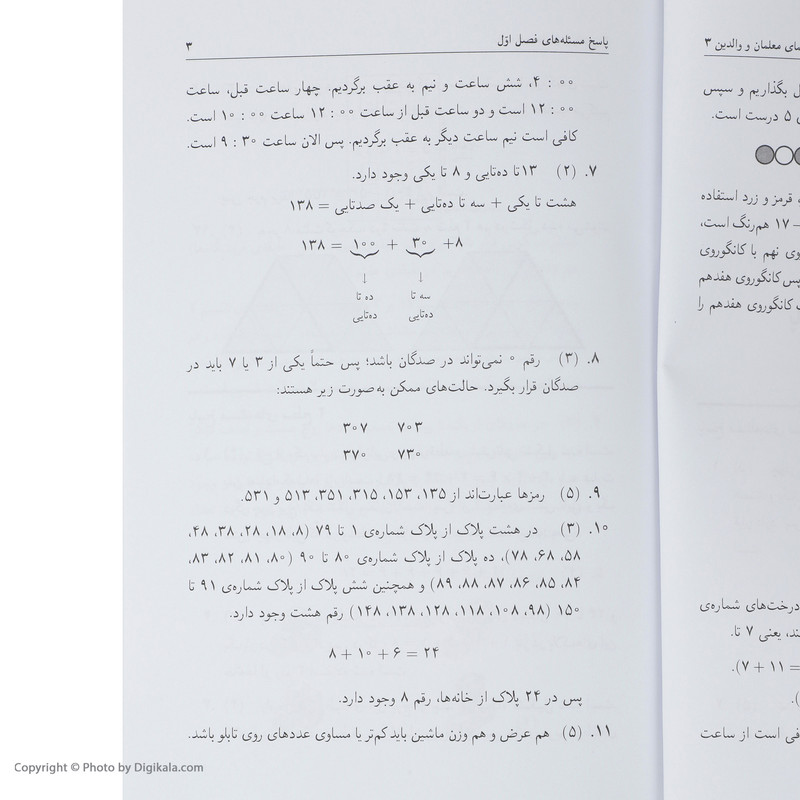 پاسخ مسئله‌های فصل اوّل ۳
۴:۰۰، شش ساعت و نیم به عقب برگردیم. چهار ساعت قبل، ساعت
۱۲:۰۰ است و دو ساعت قبل از ساعت ۱۲:۰۰ ساعت ۱۰:۰۰ است.
کافی است نیم ساعت دیگر به عقب برگردیم. پس الان ساعت ۹:۳۰ است.
۷. (۲) ۱۳ تا ده‌تایی و ۸ تا یکی وجود دارد.
هشت تا یکی + سه تا ده‌تایی + یک صدتایی = ۱۳۸
۱۳۸ = ۱۰۰ + ۳۰ +۸
↓ ↓
ده تا سه تا
ده‌تایی ده‌تایی
۸. (۳) رقم ۰ نمی‌تواند در صدگان باشد؛ پس حتماً یکی از ۳ یا ۷ باید در
صدگان قرار بگیرد. حالت‌های ممکن به‌صورت زیر هستند:
۳۰۷ ۷۰۳
۳۷۰ ۷۳۰
۹. (۵) رمزها عبارت‌اند از ۱۳۵، ۱۵۳، ۳۱۵، ۳۵۱، ۵۱۳ و ۵۳۱.
۱۰. (۳) در هشت پلاک از پلاک شماره‌ی ۱ تا ۷۹ (۸، ۱۸، ۲۸، ۳۸، ۴۸،
۵۸، ۶۸، ۷۸)، ده پلاک از پلاک شماره‌ی ۸۰ تا ۹۰ (۸۰، ۸۱، ۸۲، ۸۳،
۸۴، ۸۵، ۸۶، ۸۷، ۸۸، ۸۹) و همچنین شش پلاک از پلاک شماره‌ی ۹۱ تا
۱۵۰ (۹۸، ۱۰۸، ۱۱۸، ۱۲۸، ۱۳۸، ۱۴۸) رقم هشت وجود دارد.
۸ + ۱۰ + ۶ = ۲۴
پس در ۲۴ پلاک از خانه‌ها، رقم ۸ وجود دارد.
۱۱. (۵) هم عرض و هم وزن ماشین باید کم‌تر یا مساوی عددهای روی تابلو باشد.
معلمان و والدین ۳
بگذاریم و سپس
۵ درست است.
قرمز و زرد استفاده
۱۷ هم‌رنگ است،
نهم با کانگوروی
پس کانگوروی هفدهم
کانگوروی هفدهم را
درخت‌های شماره‌ی
یعنی ۷ تا.
= ۱۱ + ۷).
است از ساعت
Copyright © Photo by Digikala.com